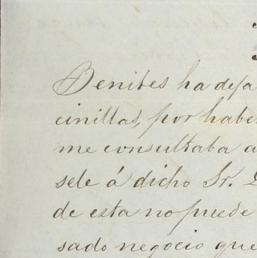 Benites ha deja
cinillas, por habe
me consultaba a
sele á dicho Sr. D
de esta no puede
sado negocio que